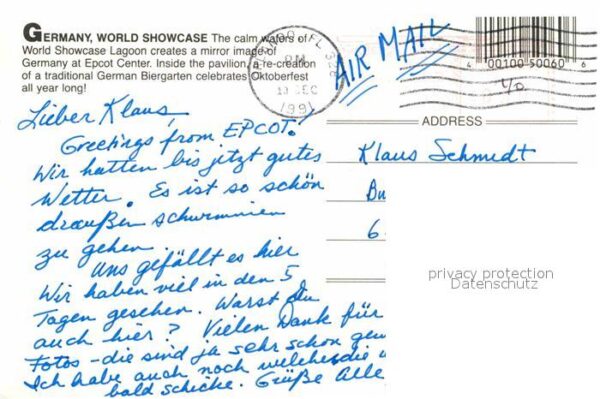 GERMANY, WORLD SHOWCASE The calm waters of
World Showcase Lagoon creates a mirror image of
Germany at Epcot Center. Inside the pavilion a re-creation
of a traditional German Biergarten celebrates Oktoberfest
all year long!
ORLANDO, FL 328
PM
13 DEC
1991
AIR MAIL
00100 50060
Lieber Klaus,
Greetings from EPCOT!
Wir hatten bis jetzt gutes
Wetter. Es ist so schön
draußen schwimmen
zu gehen.
Uns gefällt es hier
Wir haben viel in den 5
Tagen gesehen. Warst du
auch hier? Vielen Dank für
Fotos - die sind ja sehr schön
Ich habe auch noch welche, die
bald schicke. Grüße Alle
ADDRESS
Klaus Schmidt
Bu
6
privacy protection
Datenschutz